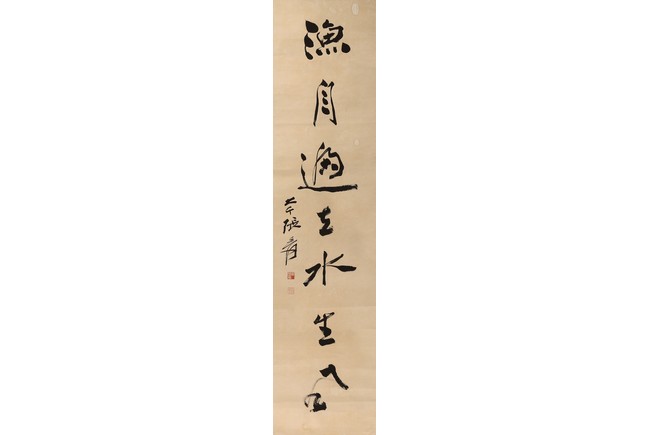 漁舟過去水生風
大千張爰